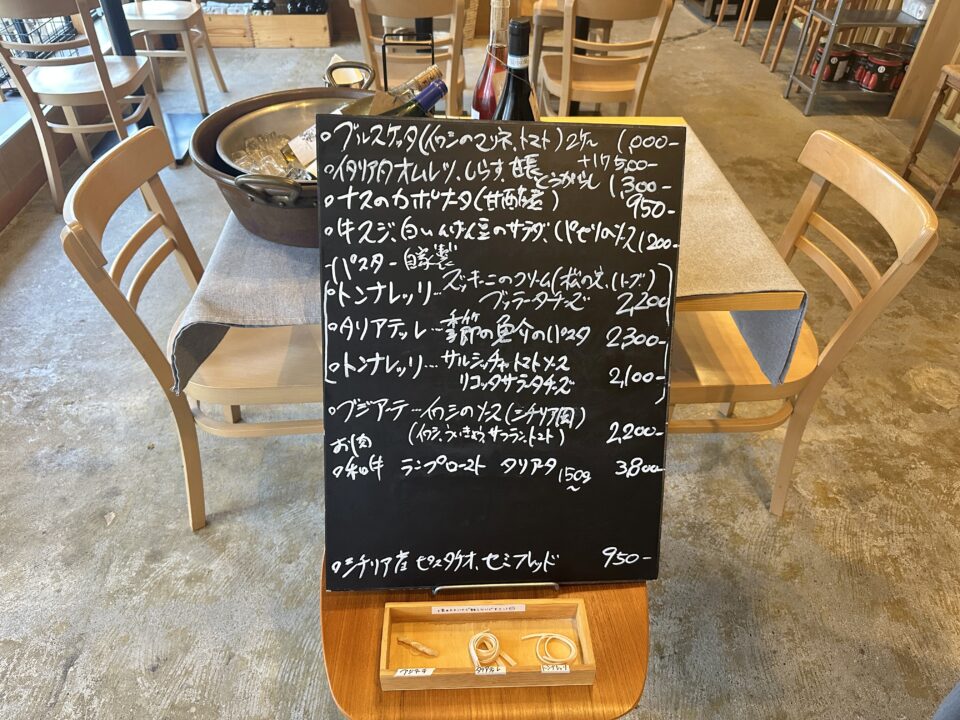 ○ブルスケッタ(イワシのマリネ、トマト)2ケ〜 1,000-
+1ケ500-
○イタリアオムレツ、しらす、とうがらし 1,300-
○ナスのカポナータ(甘酢煮) 950-
○牛スジ、白いんげん豆のサラダ、パセリのソース 1200-
パスタ- 自家製
○トンナレッリ…ズッキーニのクリーム(松の実、ハーブ)
ブッラータチーズ 2,200
○タリアテッレ…季節の魚介のパスタ 2300-
○トンナレッリ…サルシッチャトマトソース
リコッタサラータチーズ 2,100-
○ブジアーテ…イワシのソース(シチリア風)
(イワシ、ういきょう、サフラン、トマト) 2,200-
お肉
○和牛 ランプロースト タリアータ 150g〜 3,800-
○シチリア産 ピスタチオ、セミフレッド 950-
ブジアーテ タリアテッレ トンナレッリ